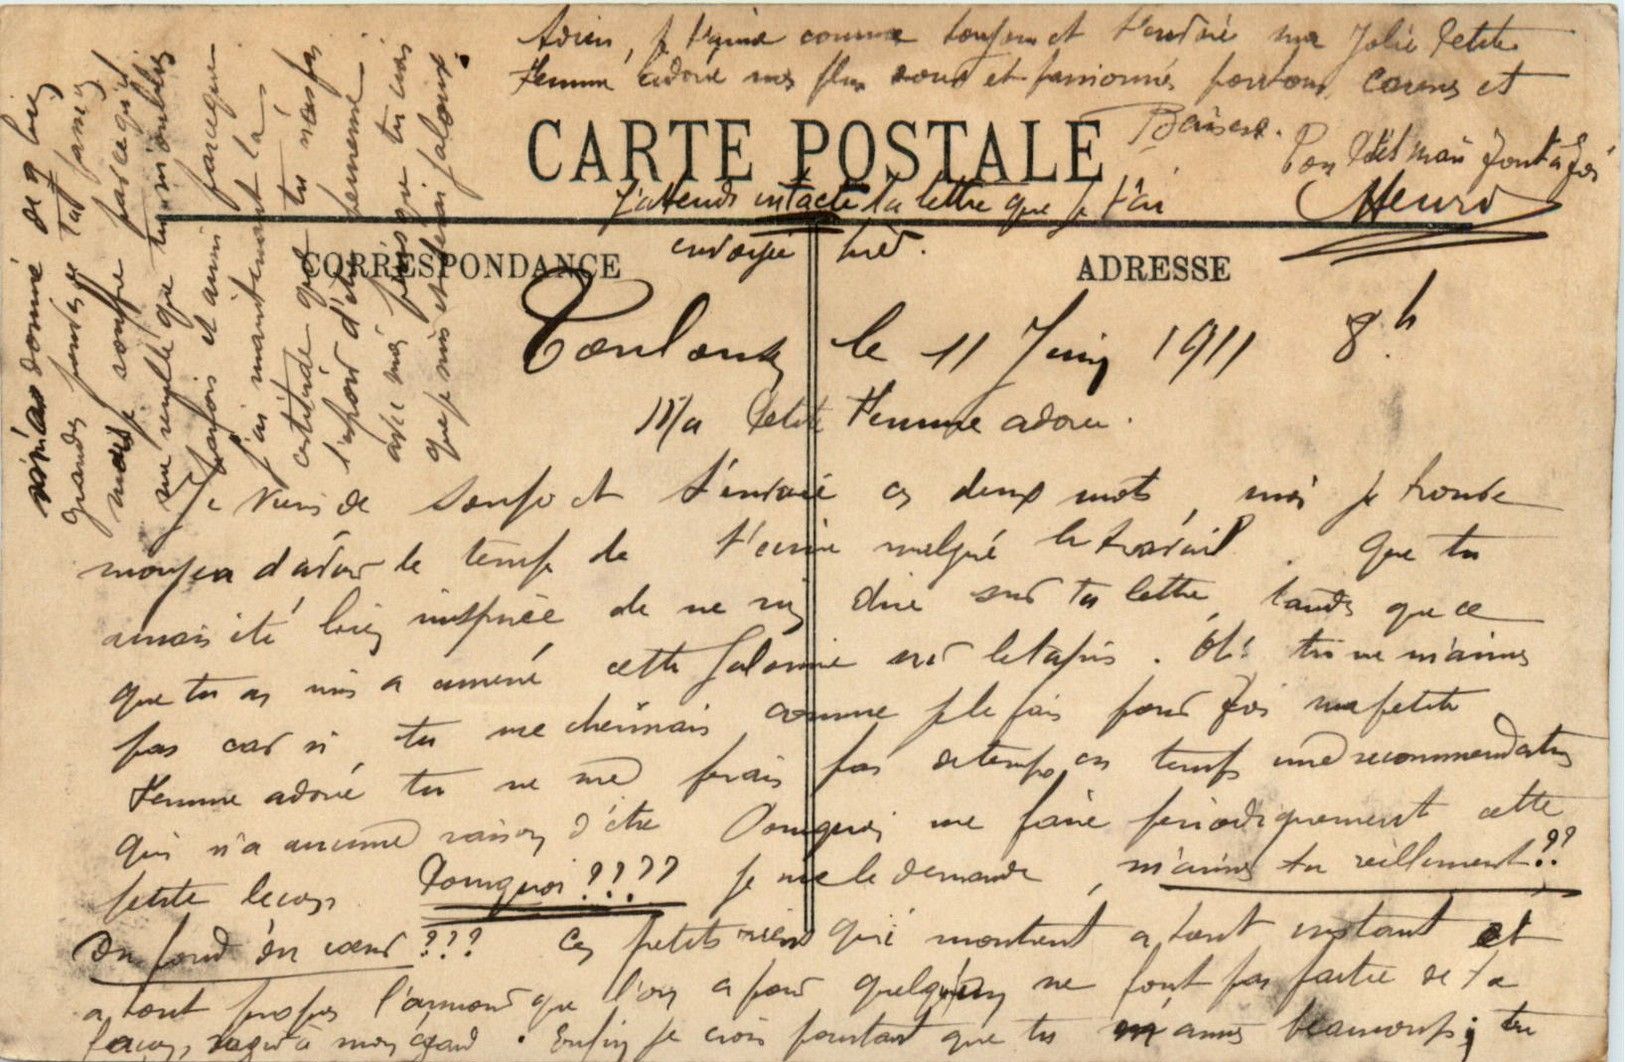 CARTE POSTALE
CORRESPONDANCE
ADRESSE
Toulouse le 11 Juin 1911 8h
Ma Petite Femme adorée.
Je viens de et t'envoie ces deux mots, moi je trouve
moyen d'avoir le temps de t'écrire malgré le travail. Que tu
aurais été bien inspirée de ne rien dire sur ta lettre, tandis que ce
que tu as mis a amené cette Jalousie sur le tapis. Oh! tu ne m'aimes
pas car si tu me comme je le fais pour toi ma petite
Femme adorée tu ne me ferais pas de temps en temps une recommandation
qui n'a aucune raison d'être Pourquoi me faire périodiquement cette
petite leçon Pourquoi???? Je me le demande, m'aimes tu réellement??
Du fond du cœur??? Ces petits riens qui montrent a tout instant et
a tout propos l'amour que l'on a pour quelqu'un ne font pas partie de ta
façon d'agir à mon égard. Enfin je crois pourtant que tu m'aimes beaucoup; tu
m'as donné de si bien
grandes preuves tat
mais je souffre parce qu'il
me semble que tu m'oublies
parfois et aussi parceque
j'ai maintenant la
certitude que tu n'as pas
l'espoir d'être
avec moi puisque tu crois
que je suis et serai jaloux.
Adieu, je t'aime comme toujours et t'envoie ma Jolie Petite
Femme adorée mes plus doux et passionnés caresses et
Baisers.
Ton Petit mari tout a toi
Henri
J'attends intacte la lettre que je t'ai
envoyée hier.